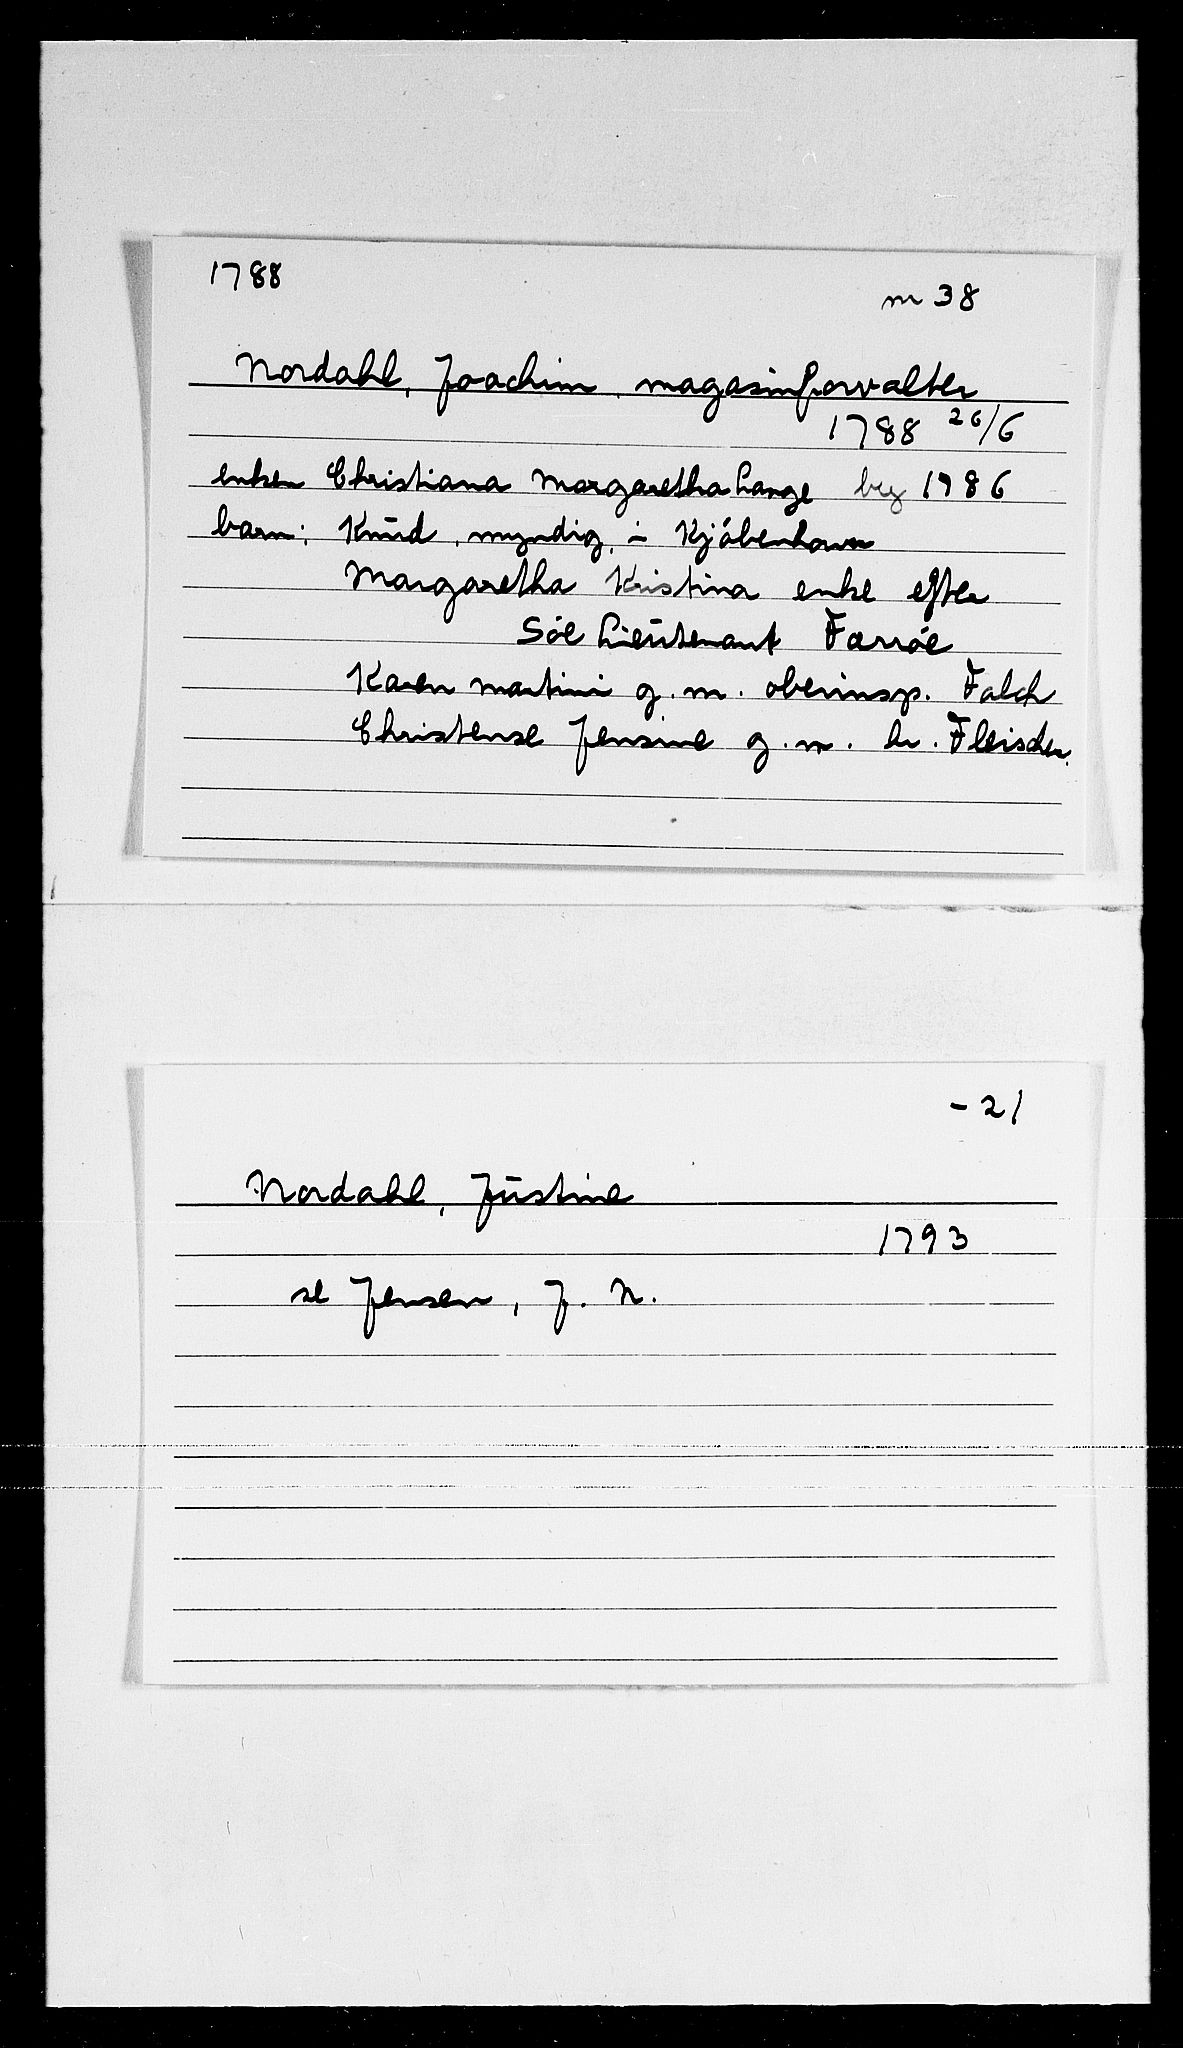 1788
m 38
Nordahl, Joachim, magasinforvalter
1788 26/6
enken Christiana Margaretha Lange beg 1786
barn: Knūd, myndig, i Kjøbenhavn
Margaretha Kristina enke efter
Söe Lieūtenant Færröe
Karen Martini g. m. oberinsp. Falch
Christense Jensine g. m. hr. Fleischer.
- 21
Nordahl, Jūstine
1793
se Jensen, J. N.